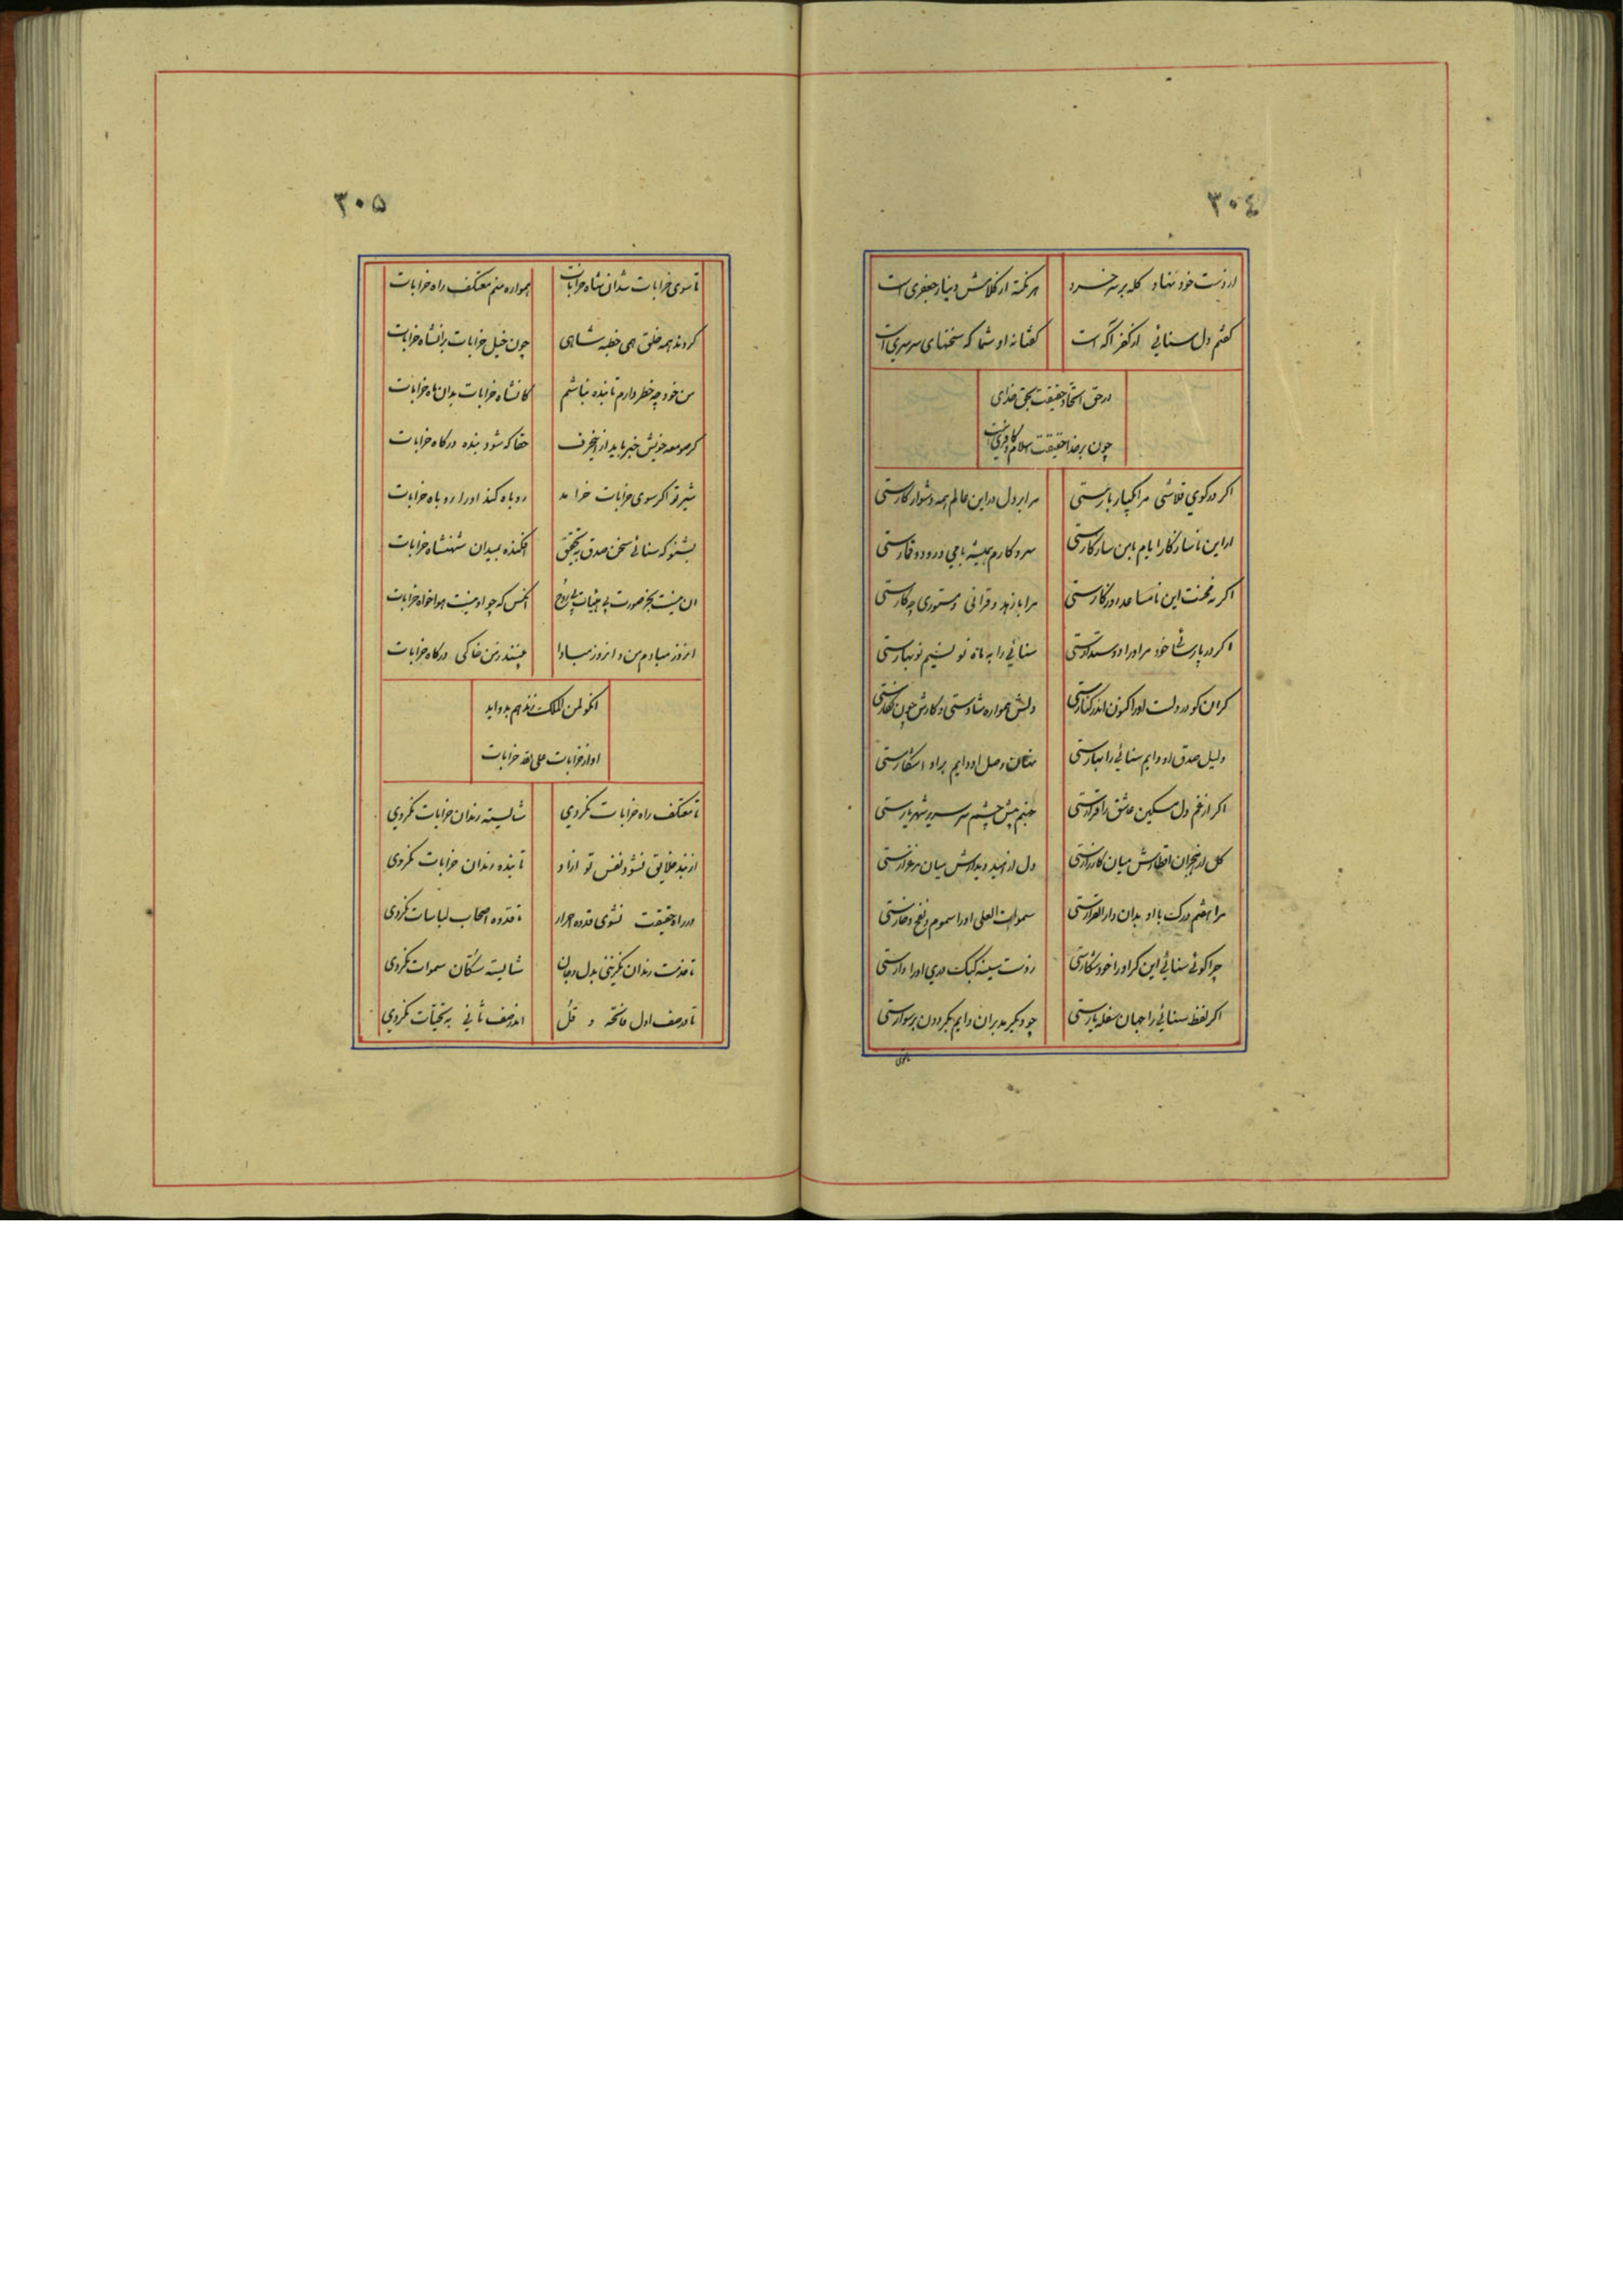 ۳۰٤
از دست خود نهاد کله بر سر خرد هر نکته از کلامش دینار جعفری است
گفتم دل سنائی از کفر آگه است گفتا نه او شما که سخنهای سرسری است
در حق اتحاد حقیقت بحق خدای
چون برخدا حقیقت اسلام کافریست
اگر در کوی قلاشی مرا یکبار بارستی مرا بر دل در این عالم همه دشوار کارستی
ار این ناسازگار ایام با من سازگارستی سر و کارم همیشه با می و رود و قمارستی
اگر نه محنت این نامساعد روزگارستی مرا با زهد و قرائی و مستوری چکارستی
اگر در پارسائی خود مرا او را دوستدارستی سنائی را به ماه نو نسیم نوبهارستی
گر آن کو در دلست او را کنون اندر کنارستی دلش همواره شادستی و کارش چون نگارستی
دلیل صدق او دایم سنائی را بهارستی نهان وصل او دایم براو آشکارستی
اگر از غم دل مسکین عاشق را قرارستی جهنم پیش چشم سر سریر شهریارستی
گل از هجران میان کارزارستی دل از امید دیدارش میان مرغزارستی
مرا هفتم درک با او بدان دار القرارستی سموات العلی او را سموم و نفح و نارستی
چرا گوئی سنائی این گر او را خود شکارستی ز دست سینه کبک دری او را
اگر لفظ سنائی را جهان سفله یارستی چو دیگر مدبران دایم بگردون بر سوارستی
تا سوی
۳۰۵
تا سوی خرابات شد آن شاه خرابات همواره منم معتکف راه خرابات
کردند همه خلق همی خطبه شاهی چون خیل خرابات بر آنشاه خرابات
من خود چه خطر دارم تا بنده نباشم کانشاه خرابات بدان ماه خرابات
گر صومعه خویش خبر یابد ازین حرف حقا که شود بنده درگاه خرابات
شیر نر اگر سوی خرابات خرامد روباه کند او را روباه خرابات
بشنو که سنائی سخن صدق به تحقیق افکنده بمیدان شهنشاه خرابات
آن نیست بجز صورت بی هیئات بی روح آنکس که چو او نیست هواخواه خرابات
آنروز مبادم من و آنروز مبادا بینند ز من خاکی درگاه خرابات
انکو لمن الملک زند هم بدو آید
آواز خرابات علی الله خرابات
تا معتکف راه خرابات نگردی شایسته رندان خرابات نگردی
از بند خلایق نشود نفس تو آزاد تا بنده رندان خرابات نگردی
در راه حقیقت نشوی قدوه احرار تا قدوه اصحاب لباسات نگردی
تا خدمت رندان نگزینی بدل و جان شایسته سکان سموات نگردی
تا در صف اول فاتحه و قل اندر صف ثانی به تحیات نگردی